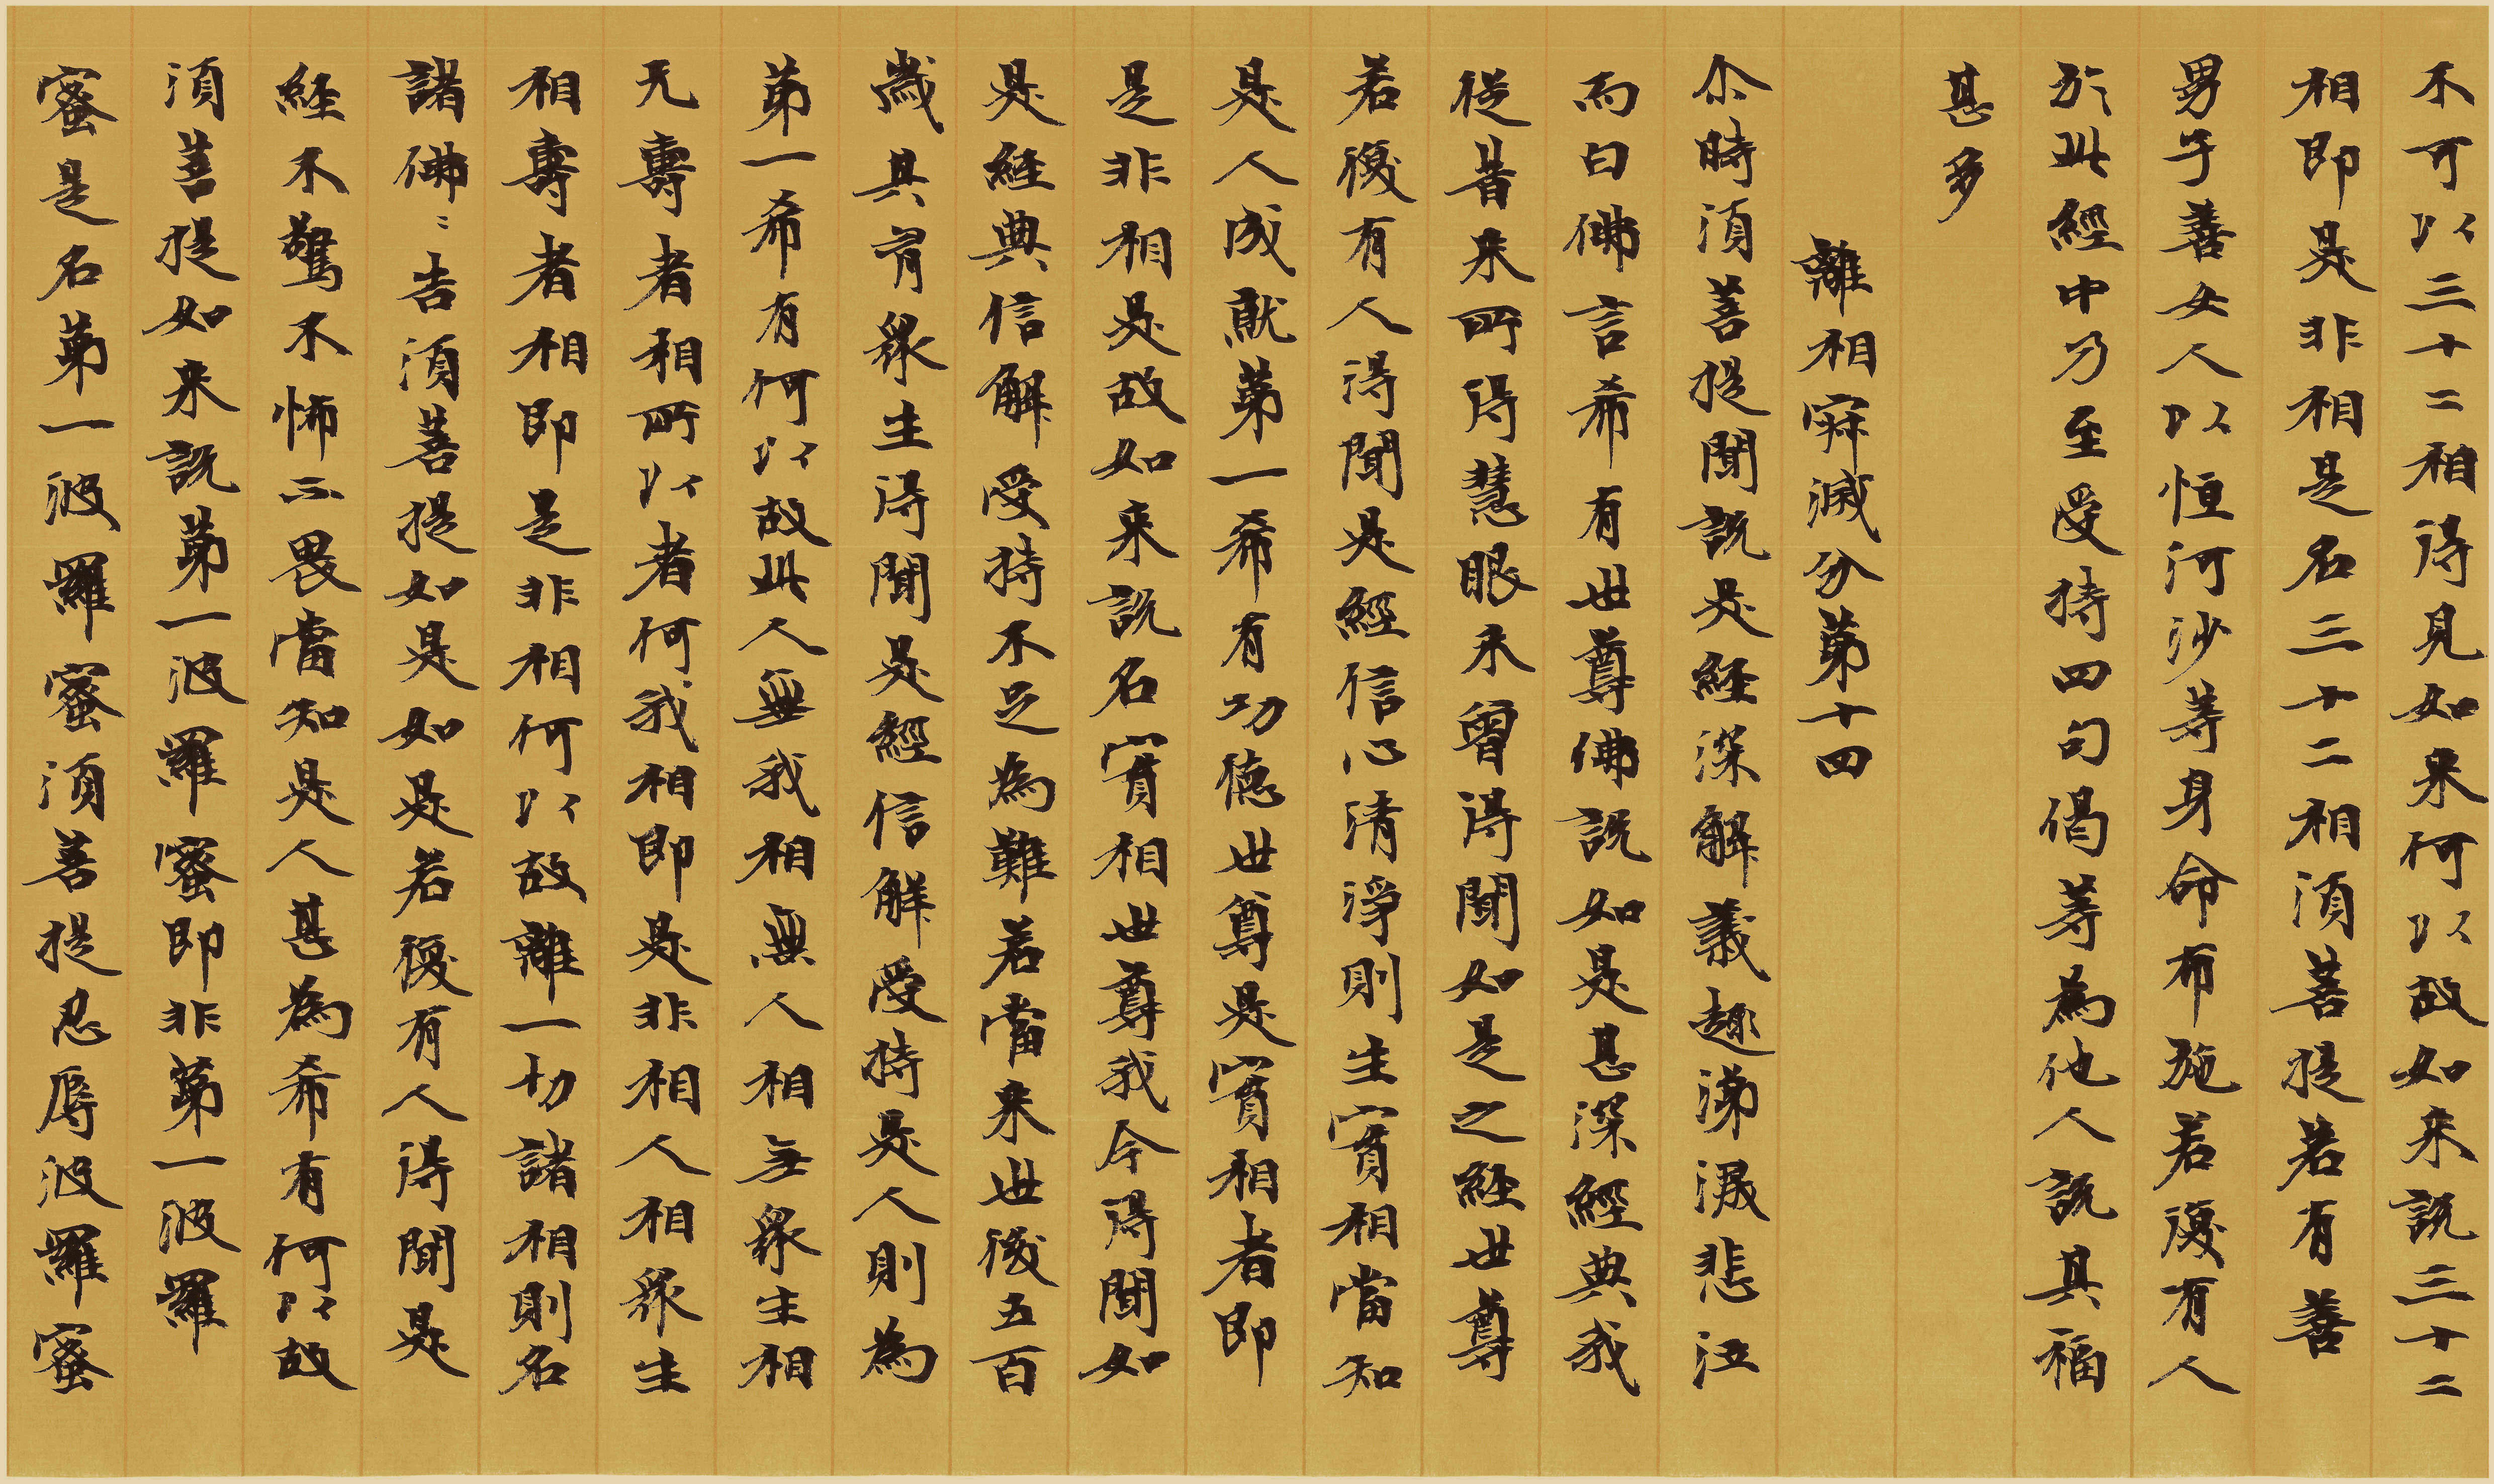 不可以三十二相得見如来何以故如来說三十二
相即是非相是名三十二相須菩提若有善
男子善女人以恒河沙等身命布施若復有人
於此經中乃至受持四句偈等為他人說其福
甚多
離相寂滅分第十四
尒時須菩提聞說是経深解義趣涕淚悲泣
而白佛言希有世尊佛說如是甚深經典我
從昔来所得慧眼未曾得聞如是之経世尊
若復有人得聞是經信心清淨則生實相當知
是人成就第一希有功德世尊是實相者即
是非相是故如来說名實相世尊我今得聞如
是経典信解受持不足為難若當来世後五百
歲其有眾生得聞是經信解受持是人則為
第一希有何以故此人無我相無人相无眾生相
无壽者相所以者何我相即是非相人相眾生
相壽者相即是非相何以故離一切諸相則名
諸佛〻告須菩提如是如是若復有人得聞是
経不驚不怖不畏當知是人甚為希有何以故
須菩提如来說第一波羅蜜即非第一波羅
蜜是名第一波羅蜜須菩提忍辱波羅蜜